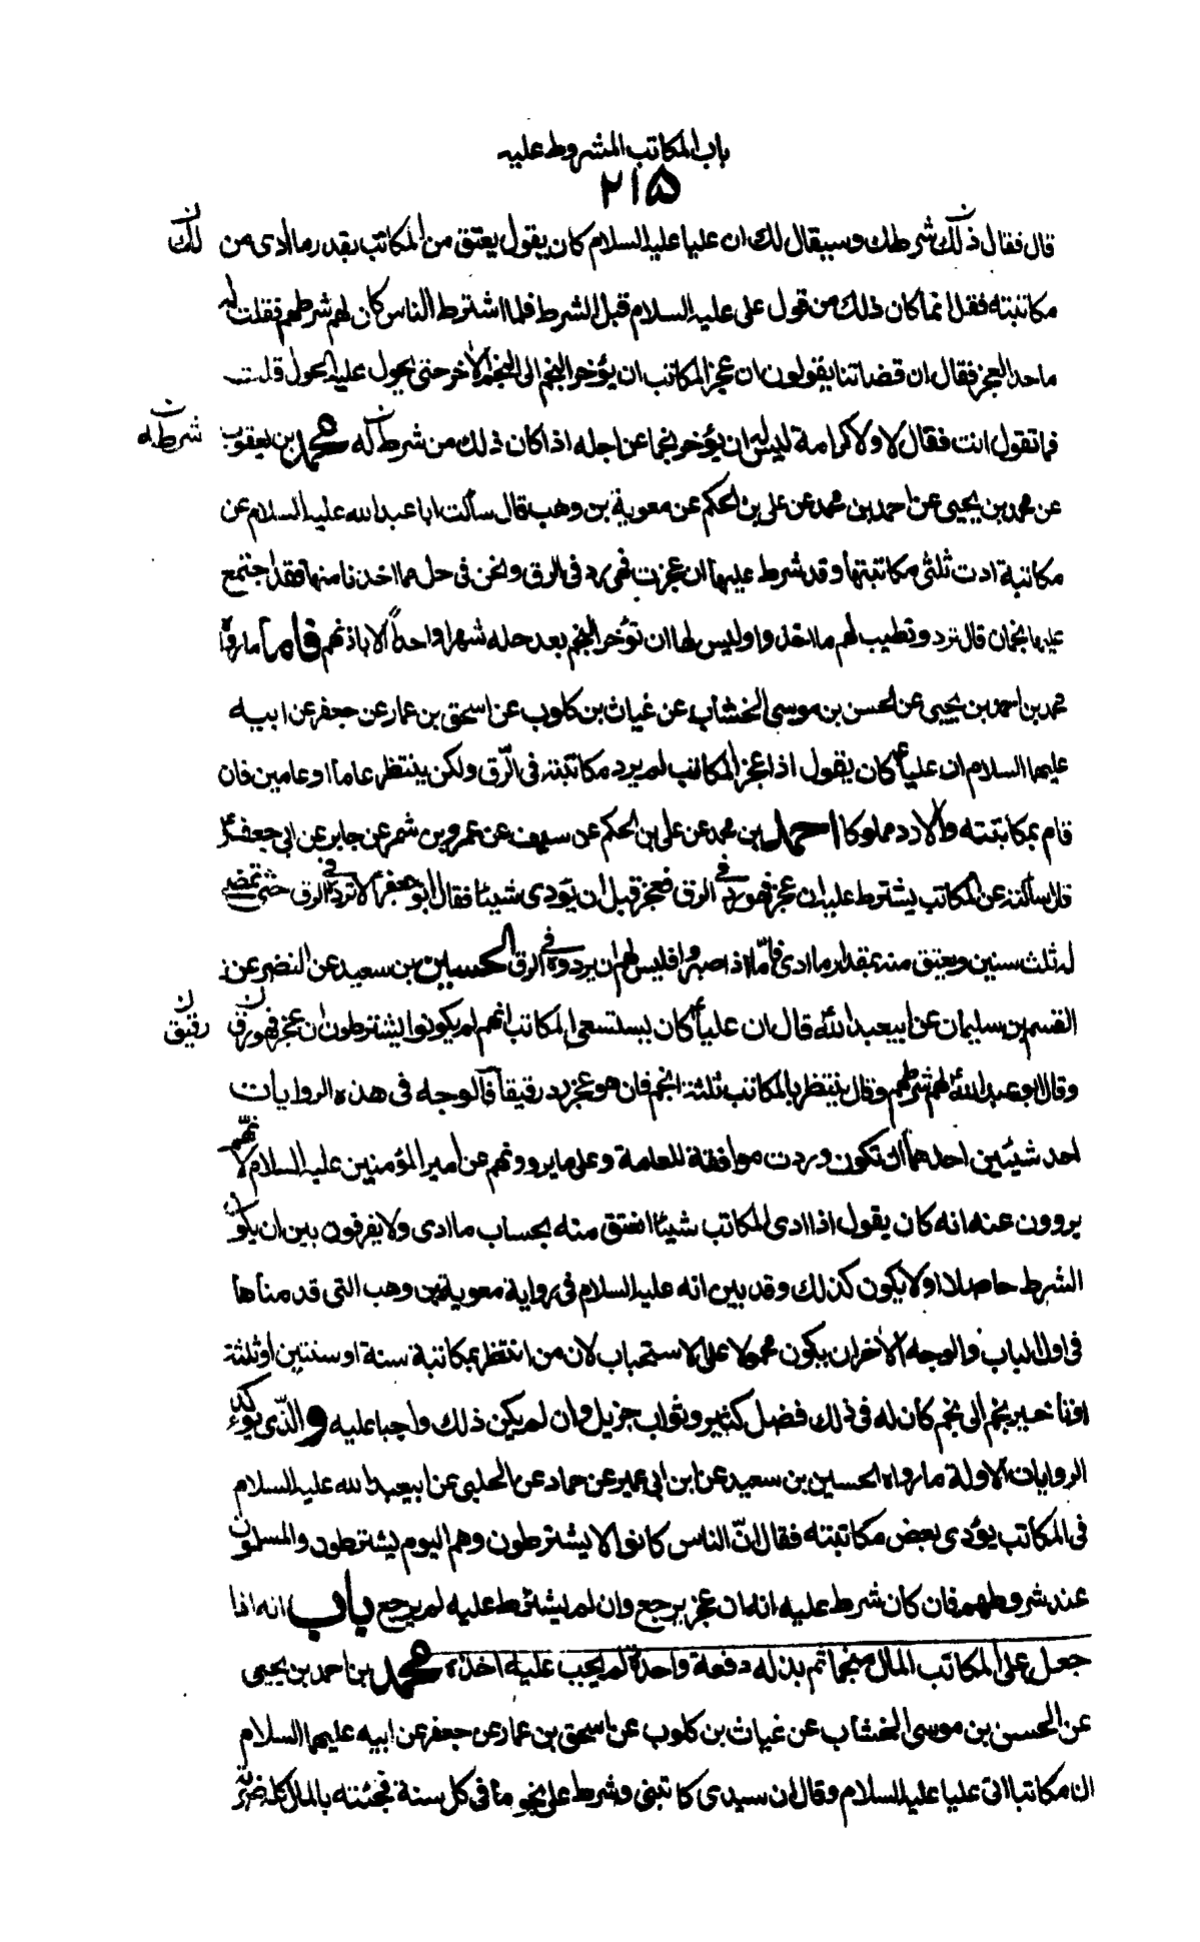 باب المكاتب المشروط عليه
٢١۵
قال فقال ذلك شرطك وسيقال لك ان عليا عليه السلام كان يقول يعتق من المكاتب بقدر ما ادى من
مكاتبته فقل انما كان ذلك من قول على عليه السلام قبل الشرط فلما اشترط الناس كان لهم شرطهم فقلت له
ما حد العجز فقال ان قضاتنا يقولون ان عجز المكاتب ان يؤخر النجم الى النجم الآخر حتى يحول عليه الحول قلت
فما تقول انت فقال لا ولا كرامة ليس له ان يؤخر نجما عن اجله اذا كان ذلك من شرط له محمد بن يعقوب
شرطه
عن محمد بن يحيى عن احمد بن محمد عن على بن الحكم عن معوية بن وهب قال سألت ابا عبد الله عليه السلام عن
مكاتبة ادت ثلثى مكاتبتها وقد شرط عليها ان عجزت فهى رد فى الرق ونحن فى حل مما اخذنا منها وقد اجتمع
عليها نجمان قال ترد وتطيب لهم ما اخذوا وليس لها ان تؤخر النجم بعد حله شهرا واحداً الا باذنهم فاما ما رواه
محمد بن احمد بن يحيى عن الحسن بن موسى الخشاب عن غياث بن كلوب عن اسحق بن عمار عن جعفر عن ابيه
عليهما السلام ان علياً ع كان يقول اذا عجز المكاتب لم يرد مكاتبته فى الرّق ولكن ينتظر عاما او عامين فان
قام بمكاتبته والا رد مملوكا احمد بن محمد عن على بن الحكم عن سيف عن عمرو بن شمر عن جابر عن ابى جعفر
قال سألته عن المكاتب يشترط عليه ان عجز فهو رد فى الرق فعجز قبل ان يؤدى شيئا فقال ابو جعفر لا ترده فى الرق حتى تمضى
له ثلث سنين ويعتق منه بمقدار ما ادى فامّا اذا صبروا فليس لهم ان يردوه فى الرق الحسين بن سعيد عن النضر عن
القسم بن سليمان عن ابيعبد الله قال ان علياً كان يستسعى المكاتب انهم لم يكونوا يشترطون ان عجز فهو رق
رقيق
وقال ابو عبد الله لهم شرطهم وقال ينتظر بالمكاتب ثلثة انجم فان هو عجز رد رقيقاً فالوجه فى هذه الروايات
احد شيئين احدهما ان تكون وردت موافقة للعامة وعلى ما يروونهم عن امير المؤمنين عليه السلام لانهم
يروون عنه انه كان يقول اذا ادى المكاتب شيئا انعتق منه بحساب ما ادى ولا يفرقون بين ان يكون
الشرط حاصلا او لا يكون كذلك وقد بين انه عليه السلام فى رواية معوية بن وهب التى قدمناها
فى اول الباب والوجه الآخر ان يكون محمولا على الاستحباب لان من انتظر بمكاتبة سنة او سنتين او ثلثة
او تأخير نجم الى نجم كان له فى ذلك فضل كثير وثواب جزيل وان لم يكن ذلك واجبا عليه والذّى يؤكد
الروايات الاولة ما رواه الحسين بن سعيد عن ابن ابى عمير عن حماد عن الحلبى عن ابيعبد الله عليه السلام
فى المكاتب يؤدى بعض مكاتبته فقال انّ الناس كانوا لا يشترطون وهم اليوم يشترطون والمسلمون
عند شروطهم فان كان شرط عليه انه ان عجز يرجع وان لم يشترط عليه لم يرجع باب انه اذا
جعل على المكاتب المال منجما ثم بذله دفعة واحدة لم يجب عليه اخذه محمد بن احمد بن يحيى
عن الحسن بن موسى الخشاب عن غياث بن كلوب عن اسحق بن عمار عن جعفر عن ابيه عليهما السلام
ان مكاتبا اتى عليا عليه السلام وقال ان سيدى كاتبنى وشرط على نجوما فى كل سنة فجئته بالمال كله ضربة